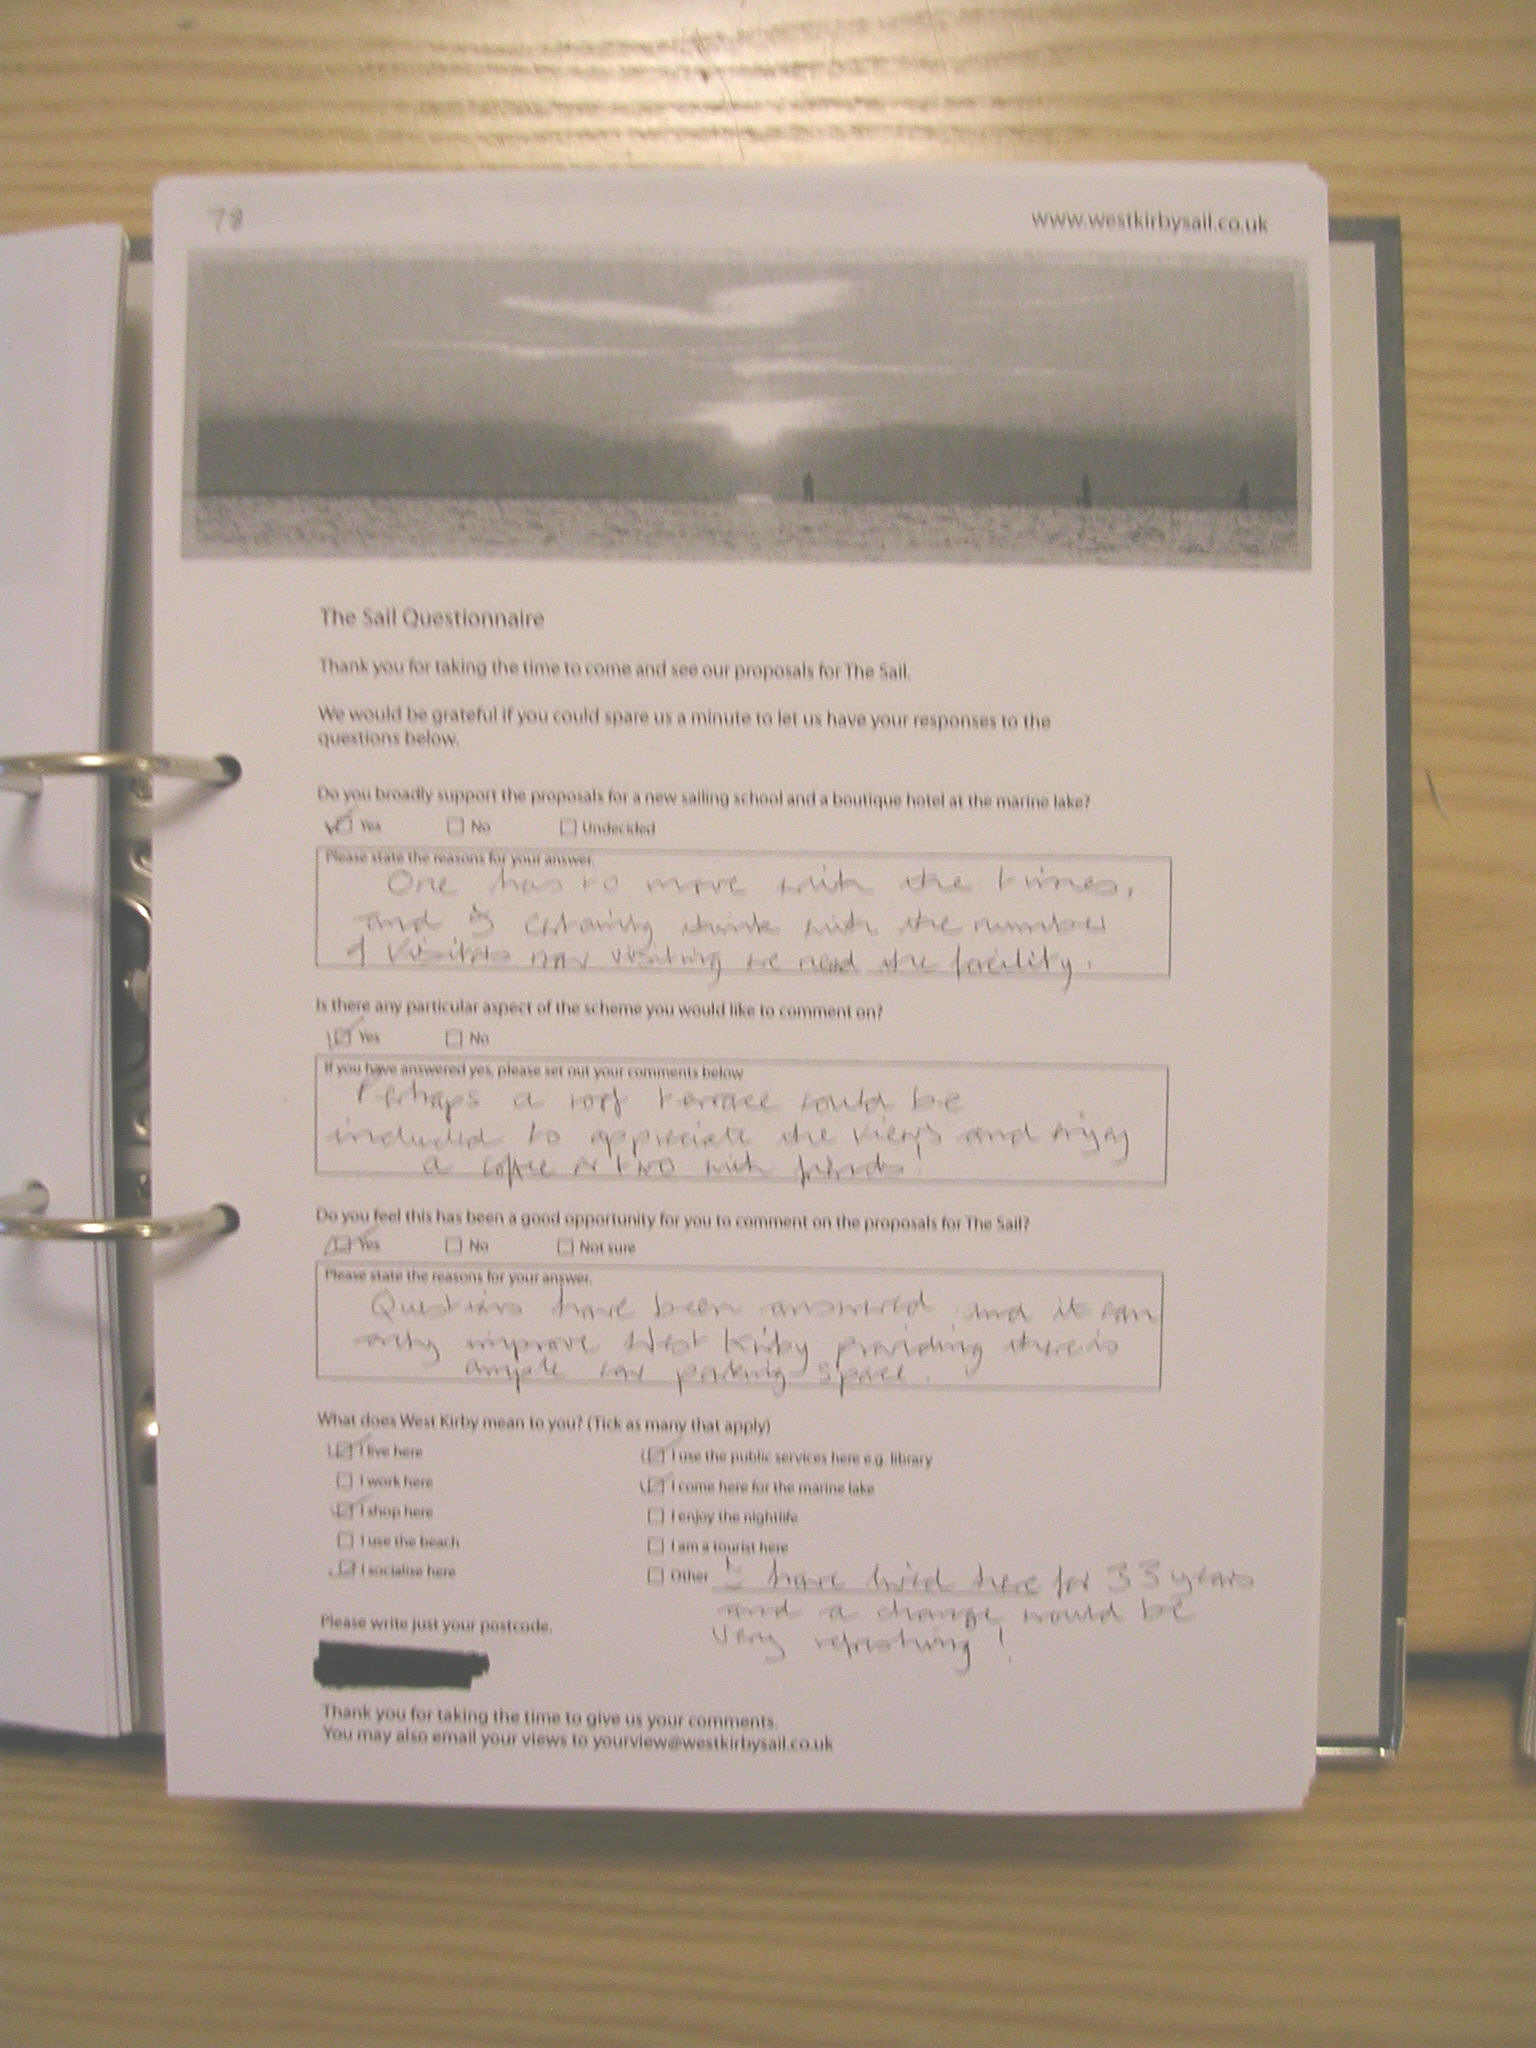 78
www.westkirbysail.co.uk
The Sail Questionnaire
Thank you for taking the time to come and see our proposals for The Sail.
We would be grateful if you could spare us a minute to let us have your responses to the
questions below.
Do you broadly support the proposals for a new sailing school and a boutique hotel at the marine lake?
Yes No Undecided
Please state the reasons for your answer.
One has to move with the times,
and I certainly think with the number
of visitors now visiting we need the facility.
Is there any particular aspect of the scheme you would like to comment on?
Yes No
If you have answered yes, please set out your comments below
Perhaps a roof terrace could be
included to appreciate the views and enjoy
a coffee or two with friends!
Do you feel this has been a good opportunity for you to comment on the proposals for The Sail?
Yes No Not sure
Please state the reasons for your answer.
Questions have been answered and it can
only improve West Kirby providing there is
ample car parking space.
What does West Kirby mean to you? (Tick as many that apply)
I live here
I work here
I shop here
I use the beach
I socialise here
I use the public services here e.g. library
I come here for the marine lake
I enjoy the nightlife
I am a tourist here
Other I have lived here for 33 years
and a change would be
very refreshing!
Please write just your postcode.
Thank you for taking the time to give us your comments.
You may also email your views to yourview@westkirbysail.co.uk